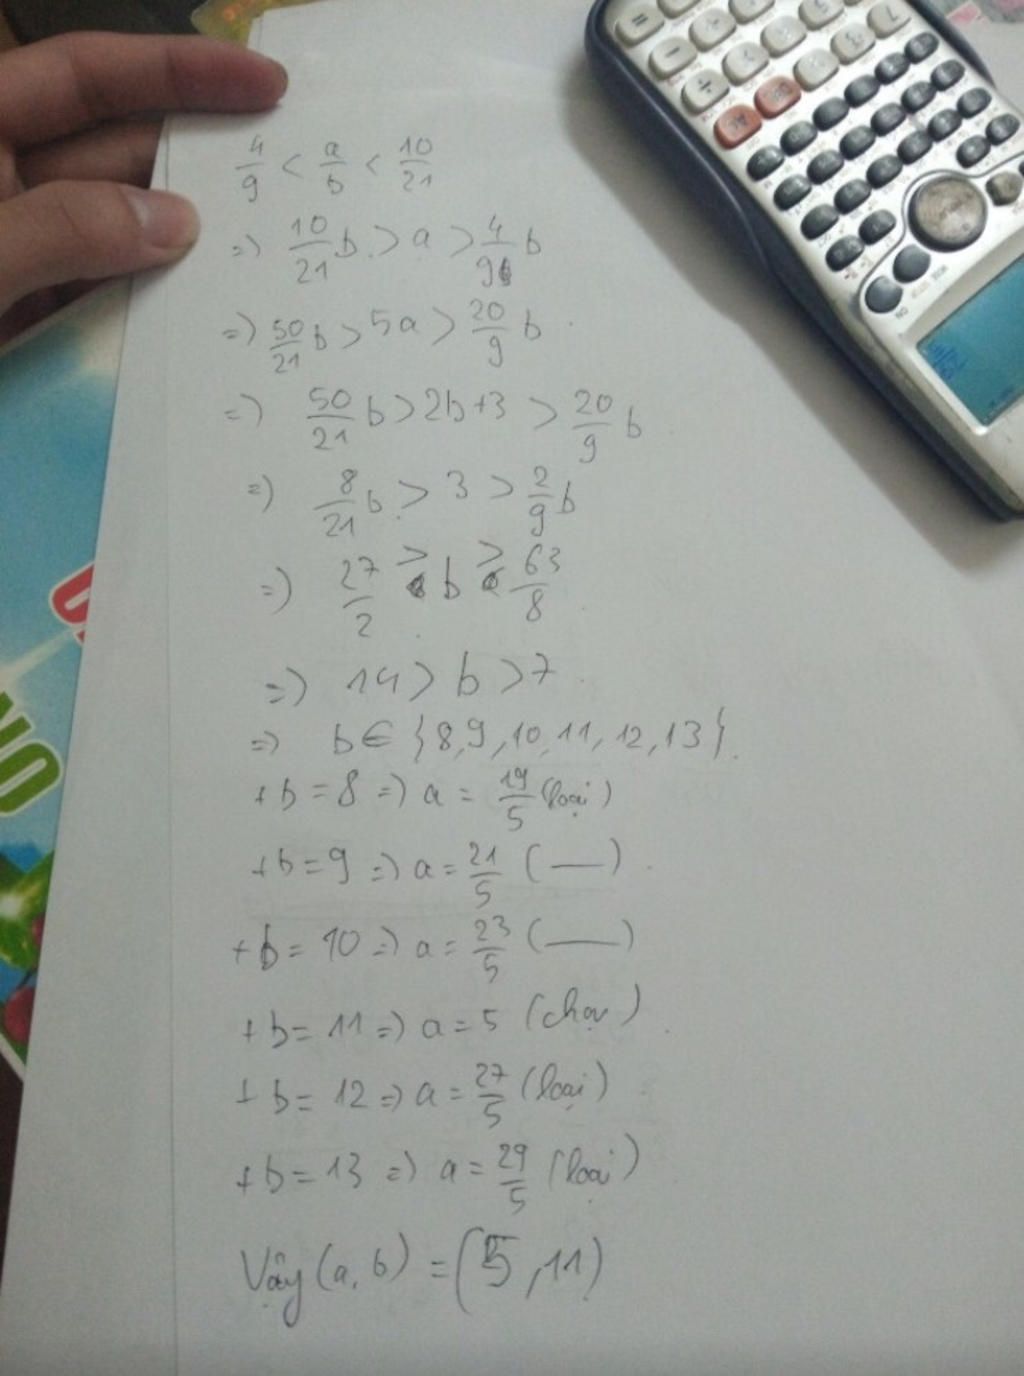 4/9 < a/b < 10/21
=) 10/21 b > a > 4/9 b
=) 50/21 b > 5a > 20/9 b
=) 50/21 b > 2b+3 > 20/9 b
=) 8/21 b > 3 > 2/9 b
=) 27/2 > b > 63/8
=) 14 > b > 7
=) b ∈ {8,9,10,11,12,13}.
+b = 8 =) a = 19/5 (loại)
+b = 9 =) a = 21/5 (—).
+b = 10 =) a = 23/5 (—)
+b = 11 =) a = 5 (chọn).
+b = 12 =) a = 27/5 (loại)
+b = 13 =) a = 29/5 (loại)
Vậy (a, b) = (5, 11)